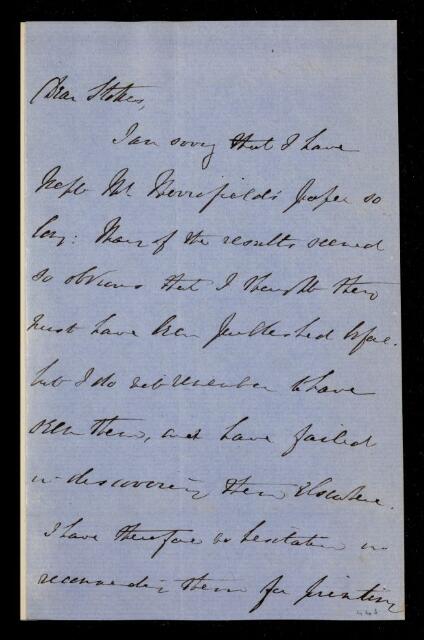 Dear Stokes,
I am sorry that I have
kept Mr Merrifield's paper so
long: Many of the results seemed
so obvious that I thought they
must have been published before.
but I do not remember to have
seen them, and have failed
in discovering them elsewhere.
I have therefore no hesitation in
recommending them for printing